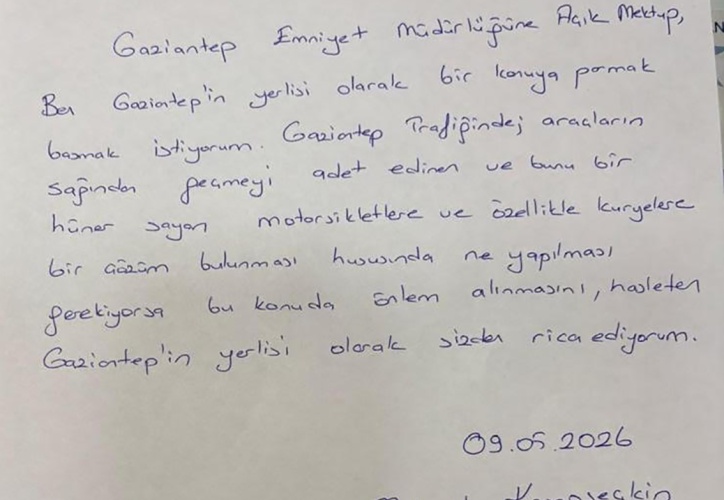 Gaziantep Emniyet Müdürlüğüne Açık Mektup,
Ben Gaziantep'in yerlisi olarak bir konuya parmak
basmak istiyorum. Gaziantep Trafiğinde; araçların
sağından geçmeyi adet edinen ve bunu bir
hüner sayan motorsikletlere ve özellikle kuryelere
bir çözüm bulunması hususında ne yapılması
gerekiyorsa bu konuda önlem alınmasını, hasleten
Gaziantep'in yerlisi olarak sizden rica ediyorum.
09.05.2026